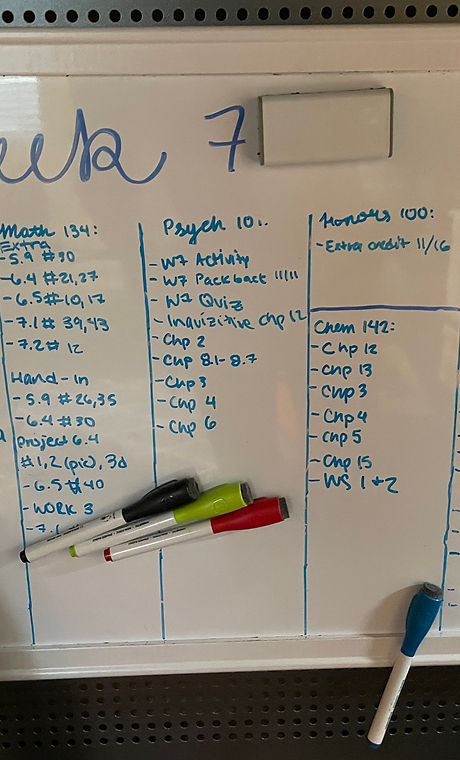 7
Math 134:
Extra
-5.9 #30
-6.4 #21,27
-6.5 #10,17
-7.1 # 39,43
-7.2 # 12
Hand-In
-5.9 #26,35
-6.4 #30
Project 6.4
#1,2 (pic), 3d
-6.5 #40
-WORK 3
-7.1
Psych 101:
- W7 Activity
- W7 Packback 11/11
- W7 Quiz
- Inquizitive Chp 12
- Chp 2
- Chp 8.1-8.7
- Chp 3
- Chp 4
- Chp 6
Honors 100:
- Extra credit 11/16
Chem 142:
- Chp 12
- Chp 13
- Chp 3
- Chp 4
- Chp 5
- Chp 15
- WS 1+2